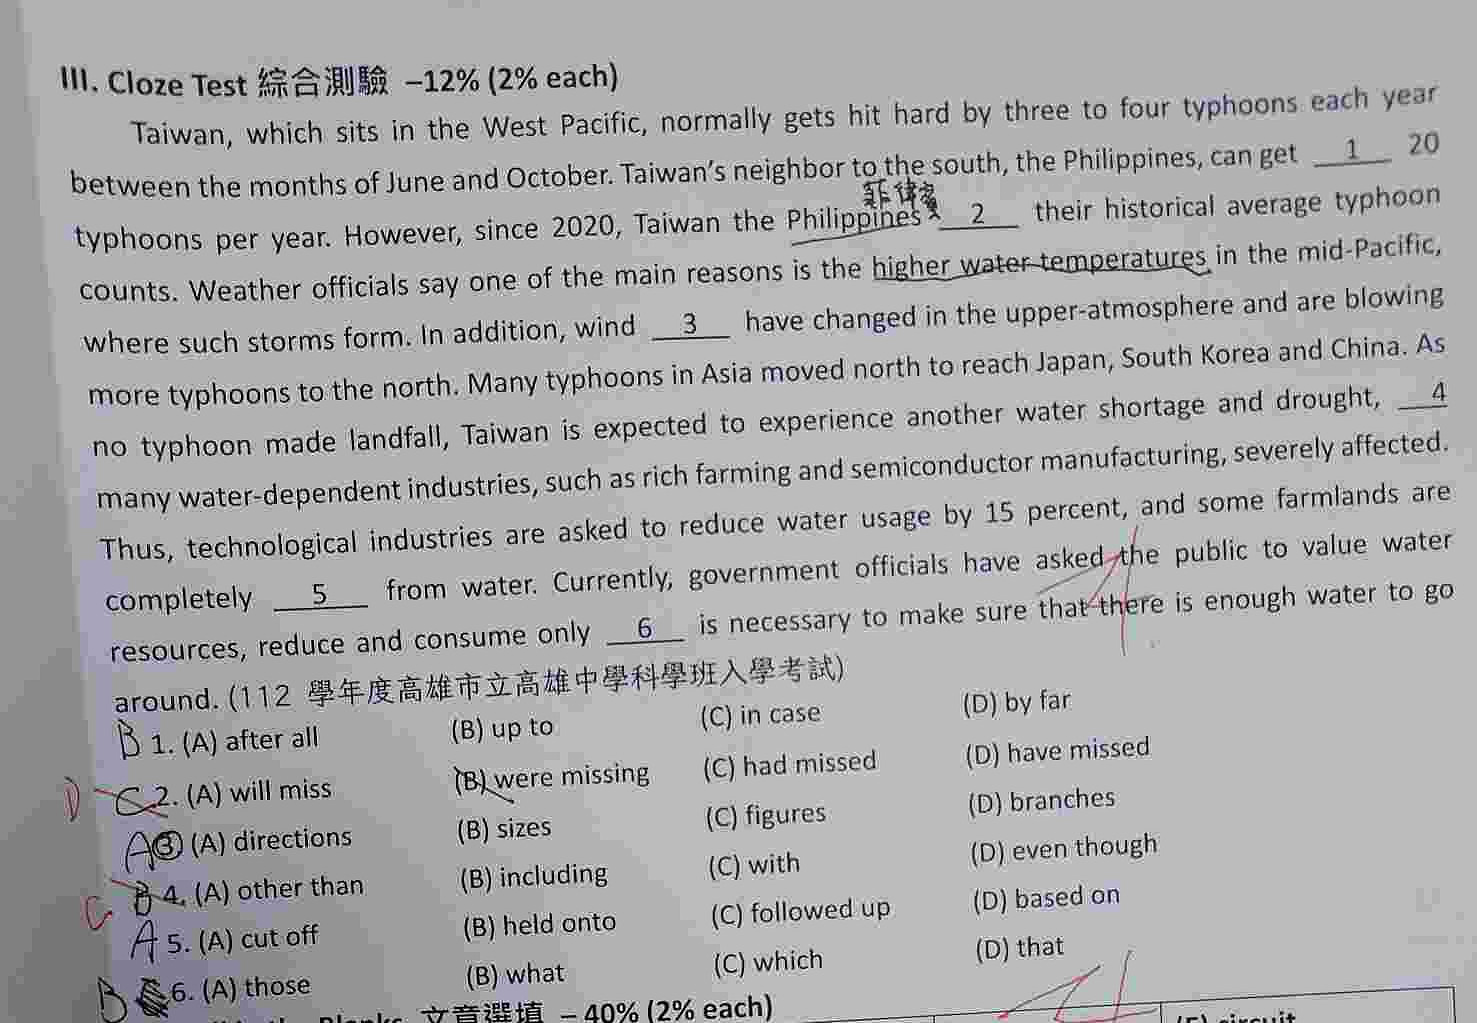 III. Cloze Test 綜合測驗 –12% (2% each)
Taiwan, which sits in the West Pacific, normally gets hit hard by three to four typhoons each year
between the months of June and October. Taiwan's neighbor to the south, the Philippines, can get 1 20
菲律賓
typhoons per year. However, since 2020, Taiwan the Philippines 2 their historical average typhoon
counts. Weather officials say one of the main reasons is the higher water temperatures in the mid-Pacific,
where such storms form. In addition, wind 3 have changed in the upper-atmosphere and are blowing
more typhoons to the north. Many typhoons in Asia moved north to reach Japan, South Korea and China. As
no typhoon made landfall, Taiwan is expected to experience another water shortage and drought, 4
many water-dependent industries, such as rich farming and semiconductor manufacturing, severely affected.
Thus, technological industries are asked to reduce water usage by 15 percent, and some farmlands are
completely 5 from water. Currently, government officials have asked the public to value water
resources, reduce and consume only 6 is necessary to make sure that there is enough water to go
around. (112 學年度高雄市立高雄中學科學班入學考試)
B 1. (A) after all (B) up to (C) in case (D) by far
D C 2. (A) will miss (B) were missing (C) had missed (D) have missed
A 3 (A) directions (B) sizes (C) figures (D) branches
C B 4. (A) other than (B) including (C) with (D) even though
A 5. (A) cut off (B) held onto (C) followed up (D) based on
B 6. (A) those (B) what (C) which (D) that
文章選填 – 40% (2% each)
(E) circuit